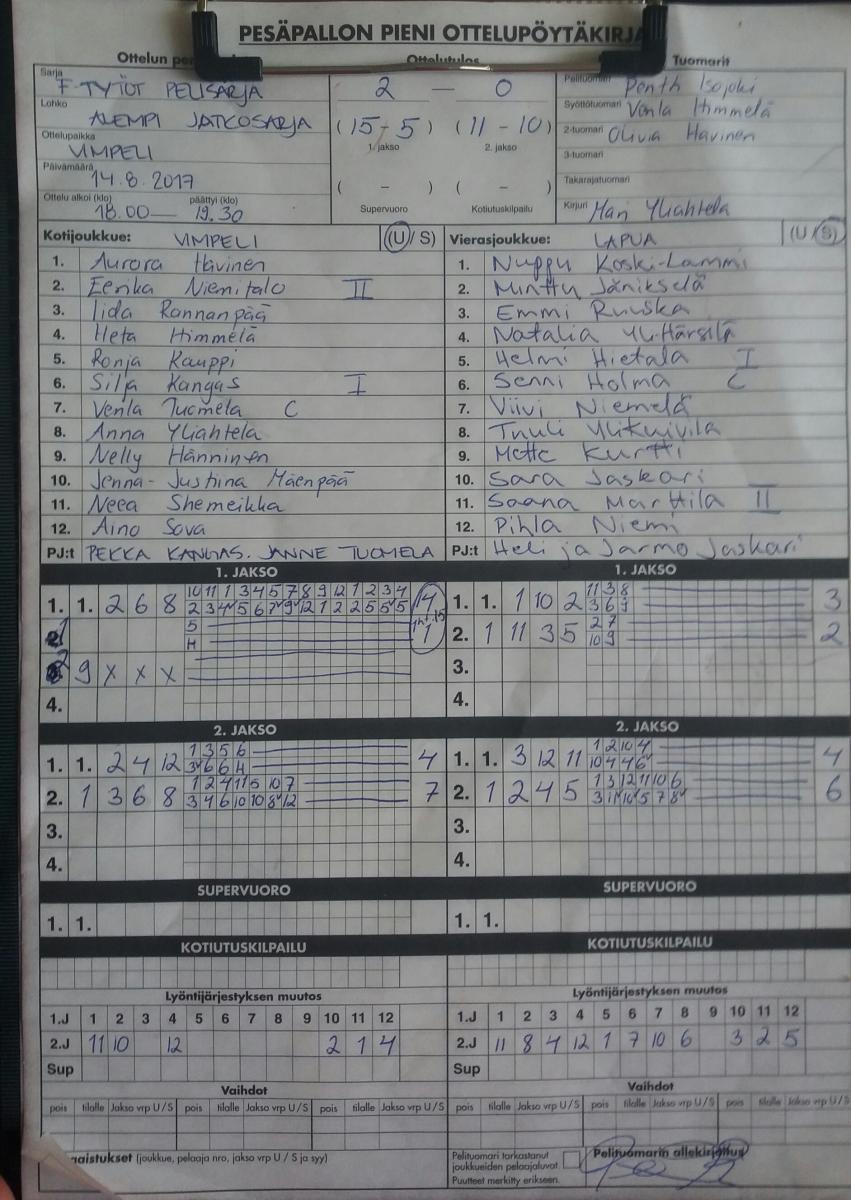 PESÄPALLON PIENI OTTELUPÖYTÄKIRJA
Ottelutulos
Tuomarit
Sarja F-TYTÖT PELISARJA
Lohko ALEMPI JATKOSARJA
Ottelupaikka VIMPELI
Päivämäärä 14.8.2017
Ottelu alkoi (klo) 18.00 — päättyi (klo) 19.30
2 — 0
(15-5) (11-10)
1. jakso 2. jakso
( - ) ( - )
Supervuoro Kotiutuskilpailu
Pelituomari Isojoki
Syöttötuomari Venla Himmelä
2-tuomari Olivia Hävinen
3-tuomari
Takarajatuomari
Kirjuri Mari Yliahtela
Kotijoukkue: VIMPELI (U/S)
1. Aurora Hävinen
2. Eerika Niemitalo II
3. Iida Rannanpää
4. Heta Himmelä
5. Ronja Kauppi
6. Silja Kangas I
7. Venla Tuomela C
8. Anna Yliahtela
9. Nelly Hänninen
10. Jenna-Justiina Mäenpää
11. Neea Shemeikka
12. Aino Sova
PJ:t PEKKA KANGAS. JANNE TUOMELA
Vierasjoukkue: LAPUA (U/S)
1. Nuppu Koski-Lammi
2. Minttu Jänikselä
3. Emmi Ruuska
4. Natalia Yli-Härsilä
5. Helmi Hietala I
6. Senni Holma C
7. Viivi Niemelä
8. Tuuli Ylikuivila
9. Mette Kurtti
10. Sara Jaskari
11. Saana Marttila II
12. Pihla Niemi
PJ:t Heli ja Jarmo Jaskari
1. JAKSO
10 11 1 3 4 5 7 8 9 12 1 2 3 4
1. 1. 2 6 8
14
5
H
1
9 x x x
4.
1. JAKSO
11 3 8
1. 1. 1 10 2 3
3 6 9
2 7
2. 1 11 3 5 2
10 9
3.
4.
2. JAKSO
1 3 5 6
1. 1. 2 4 12 4
3 6 6 H
1 2 4 11 5 10 7
2. 1 3 6 8 7
3 4 6 10 10 8 12
3.
4.
2. JAKSO
1 2 10 4
1. 1. 3 12 11 4
10 4 4 6
1 3 12 11 10 6
2. 1 2 4 5 6
3 11 10 5 7 8
3.
4.
SUPERVUORO
1. 1.
SUPERVUORO
1. 1.
KOTIUTUSKILPAILU
KOTIUTUSKILPAILU
Lyöntijärjestyksen muutos
1.J 1 2 3 4 5 6 7 8 9 10 11 12
2.J 11 10 12 2 1 4
Sup
Lyöntijärjestyksen muutos
1.J 1 2 3 4 5 6 7 8 9 10 11 12
2.J 11 8 4 12 1 7 10 6 3 2 5
Sup
Vaihdot
pois tilalle Jakso vrp U/S pois tilalle Jakso vrp U/S pois tilalle Jakso vrp U/S
Vaihdot
pois tilalle Jakso vrp U/S pois tilalle Jakso vrp U/S pois tilalle Jakso vrp U/S
(joukkue, pelaaja nro, jakso vrp U / S ja syy)
Pelituomari tarkastanut
joukkueiden pelaajaluvat.
Puutteet merkitty erikseen.
Pelituomarin allekirjoitus